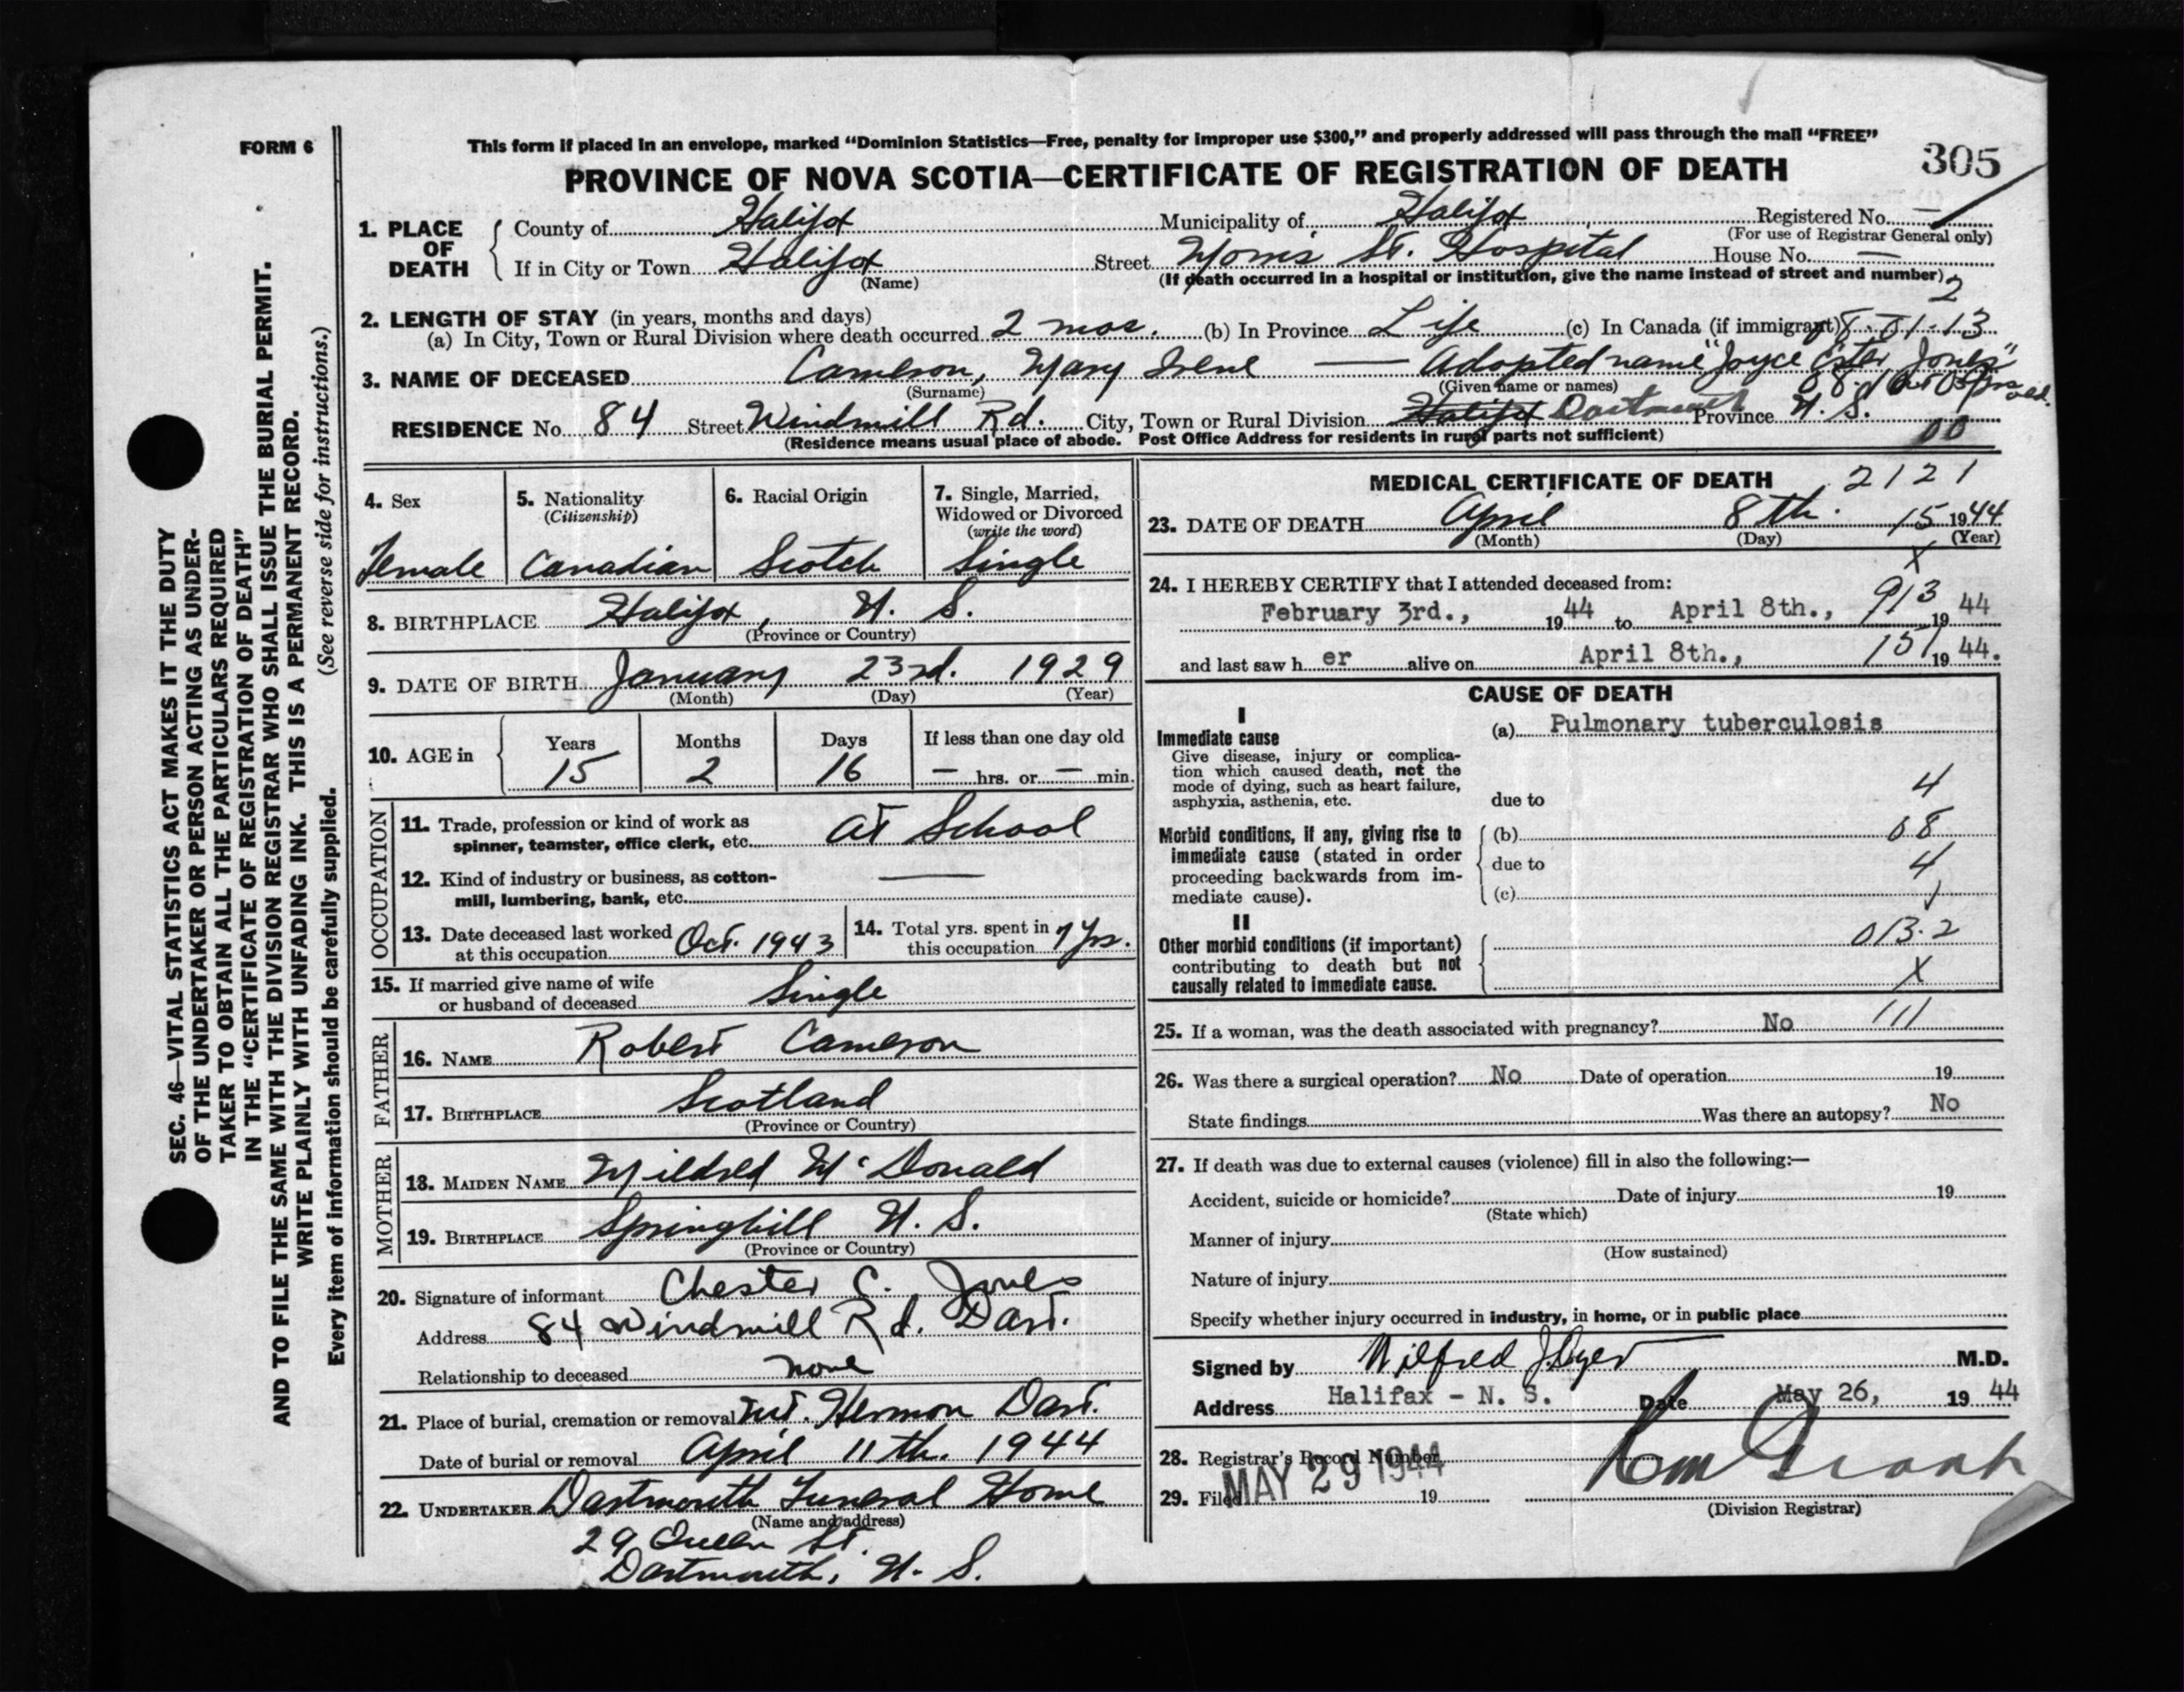 FORM 6
This form if placed in an envelope, marked “Dominion Statistics—Free, penalty for improper use $300,” and properly addressed will pass through the mail “FREE”
305
PROVINCE OF NOVA SCOTIA—CERTIFICATE OF REGISTRATION OF DEATH
1. PLACE OF DEATH
County of Halifax Municipality of Halifax Registered No. —
(For use of Registrar General only)
If in City or Town Halifax Street Morris St. Hospital House No. —
(Name) (If death occurred in a hospital or institution, give the name instead of street and number)
2
2. LENGTH OF STAY (in years, months and days)
(a) In City, Town or Rural Division where death occurred 2 mos. (b) In Province Life (c) In Canada (if immigrant)
3. NAME OF DECEASED Cameron, Mary Irene — Adopted name "Joyce Ester Jones"
(Surname) (Given name or names)
RESIDENCE No. 84 Street Windmill Rd. City, Town or Rural Division Halifax Dartmouth Province N. S.
(Residence means usual place of abode. Post Office Address for residents in rural parts not sufficient)
00
4. Sex Female
5. Nationality (Citizenship) Canadian
6. Racial Origin Scotch
7. Single, Married, Widowed or Divorced (write the word) Single
8. BIRTHPLACE Halifax, N. S.
(Province or Country)
9. DATE OF BIRTH January 23rd. 1929
(Month) (Day) (Year)
10. AGE in Years 15 Months 2 Days 16 If less than one day old — hrs. or — min.
OCCUPATION
11. Trade, profession or kind of work as
spinner, teamster, office clerk, etc. At School
12. Kind of industry or business, as cotton-
mill, lumbering, bank, etc. —
13. Date deceased last worked
at this occupation Oct. 1943
14. Total yrs. spent in
this occupation 7 yrs.
15. If married give name of wife
or husband of deceased Single
FATHER
16. NAME Robert Cameron
17. BIRTHPLACE Scotland
(Province or Country)
MOTHER
18. MAIDEN NAME Mildred McDonald
19. BIRTHPLACE Springhill N. S.
(Province or Country)
20. Signature of informant Chester C. Jones
Address 84 Windmill Rd. Dart.
Relationship to deceased none
21. Place of burial, cremation or removal Mt. Hermon Dart.
Date of burial or removal April 11th. 1944
22. UNDERTAKER Dartmouth Funeral Home
(Name and address)
29 Queen St.
Dartmouth, N. S.
MEDICAL CERTIFICATE OF DEATH 2121
23. DATE OF DEATH April 8th. 15 1944
(Month) (Day) (Year)
X
24. I HEREBY CERTIFY that I attended deceased from:
February 3rd., 1944 to April 8th., 913 1944
and last saw her alive on April 8th., 151 1944.
CAUSE OF DEATH
I
Immediate cause
Give disease, injury or complica-
tion which caused death, not the
mode of dying, such as heart failure,
asphyxia, asthenia, etc.
(a) Pulmonary tuberculosis
4
due to
Morbid conditions, if any, giving rise to
immediate cause (stated in order
proceeding backwards from im-
mediate cause).
(b) 08
due to 4
(c)
II
Other morbid conditions (if important)
contributing to death but not
causally related to immediate cause.
013.2
X
25. If a woman, was the death associated with pregnancy? No 111
26. Was there a surgical operation? No Date of operation 19
State findings Was there an autopsy? No
27. If death was due to external causes (violence) fill in also the following:—
Accident, suicide or homicide? Date of injury 19
(State which)
Manner of injury
(How sustained)
Nature of injury
Specify whether injury occurred in industry, in home, or in public place
Signed by Wilfred J. Dyer M.D.
Address Halifax - N. S. Date May 26, 1944
28. Registrar's Record Number
29. Filed MAY 29 1944 19
(Division Registrar)
SEC. 46—VITAL STATISTICS ACT MAKES IT THE DUTY
OF THE UNDERTAKER OR PERSON ACTING AS UNDER-
TAKER TO OBTAIN ALL THE PARTICULARS REQUIRED
IN THE “CERTIFICATE OF REGISTRATION OF DEATH”
AND TO FILE THE SAME WITH THE DIVISION REGISTRAR WHO SHALL ISSUE THE BURIAL PERMIT.
WRITE PLAINLY WITH UNFADING INK. THIS IS A PERMANENT RECORD.
Every item of information should be carefully supplied. (See reverse side for instructions.)